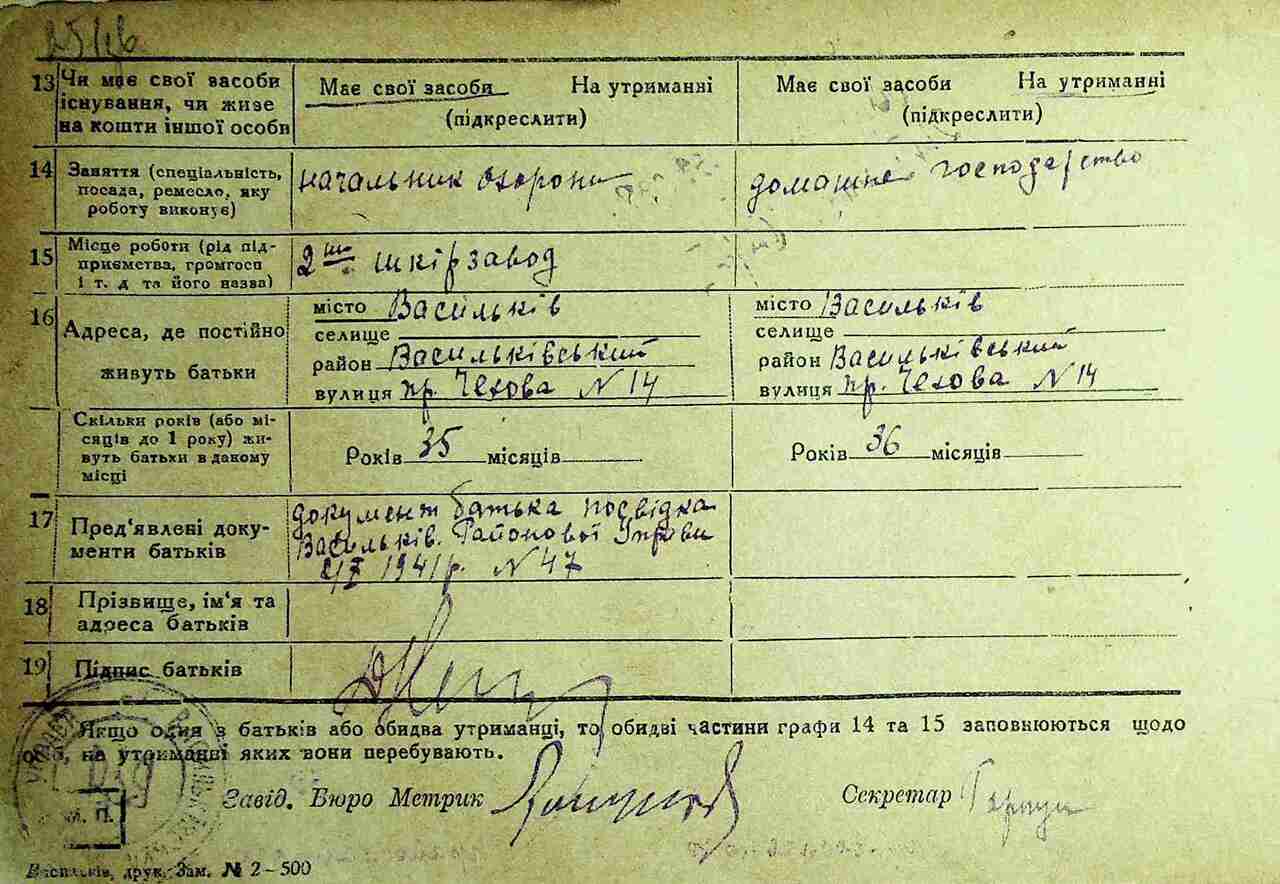 13 Чи має свої засоби існування, чи живе на кошти іншої особи
Має свої засоби На утриманні
(підкреслити)
Має свої засоби На утриманні
(підкреслити)
14 Заняття (спеціальність, посада, ремесло, яку роботу виконує)
начальник охорони
домашнє господарство
15 Місце роботи (рід підприємства, громгосп і т. д та його назва)
2ий шкірзавод
16 Адреса, де постійно живуть батьки
місто Васильків
селище
район Васильківський
вулиця пр. Чехова N 14
місто Васильків
селище
район Васильківський
вулиця пр. Чехова N 14
Скільки років (або місяців до 1 року) живуть батьки в даному місці
Років 35 місяців
Років 36 місяців
17 Пред'явлені документи батьків
документ батька посвідка
Васильків. Районової Управи
1941р. N 47
18 Прізвище, ім'я та адреса батьків
19 Підпис батьків
Якщо один з батьків або обидва утриманці, то обидві частини графи 14 та 15 заповнюються щодо
осіб, на утриманні яких вони перебувають.
Завід. Бюро Метрик
Секретар
М. П.
Васильків, друк. Зам. № 2-500